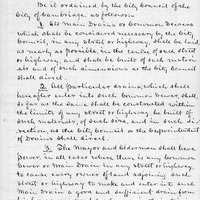 Be it ordained, by the City Council of the
City of Cambridge, as follows:
1. All Main Drains or Common Sewers
which shall be considered necessary by the City
Council, in any street or highway, shall be laid
as nearly as possible, in the centre of such street
or highway, and shall be built of such materi-
als and of such dimensions as the City Council
shall direct.
2. All particular drains, which shall
hereafter enter into such Common Sewer, shall
so far as the same shall be constructed within
the limits of any street or highway, be built of
such materials, of such size, and in such di-
rection, as the City Council or the Superintendent
of Drains shall direct.
3. The Mayor and Aldermen shall have
power, in all cases where there is any Common
Sewer or Main Drain in any street or highway,
to cause every owner of land adjoining such
street or highway to make and enter into such
Main Drain a good and sufficient drain from